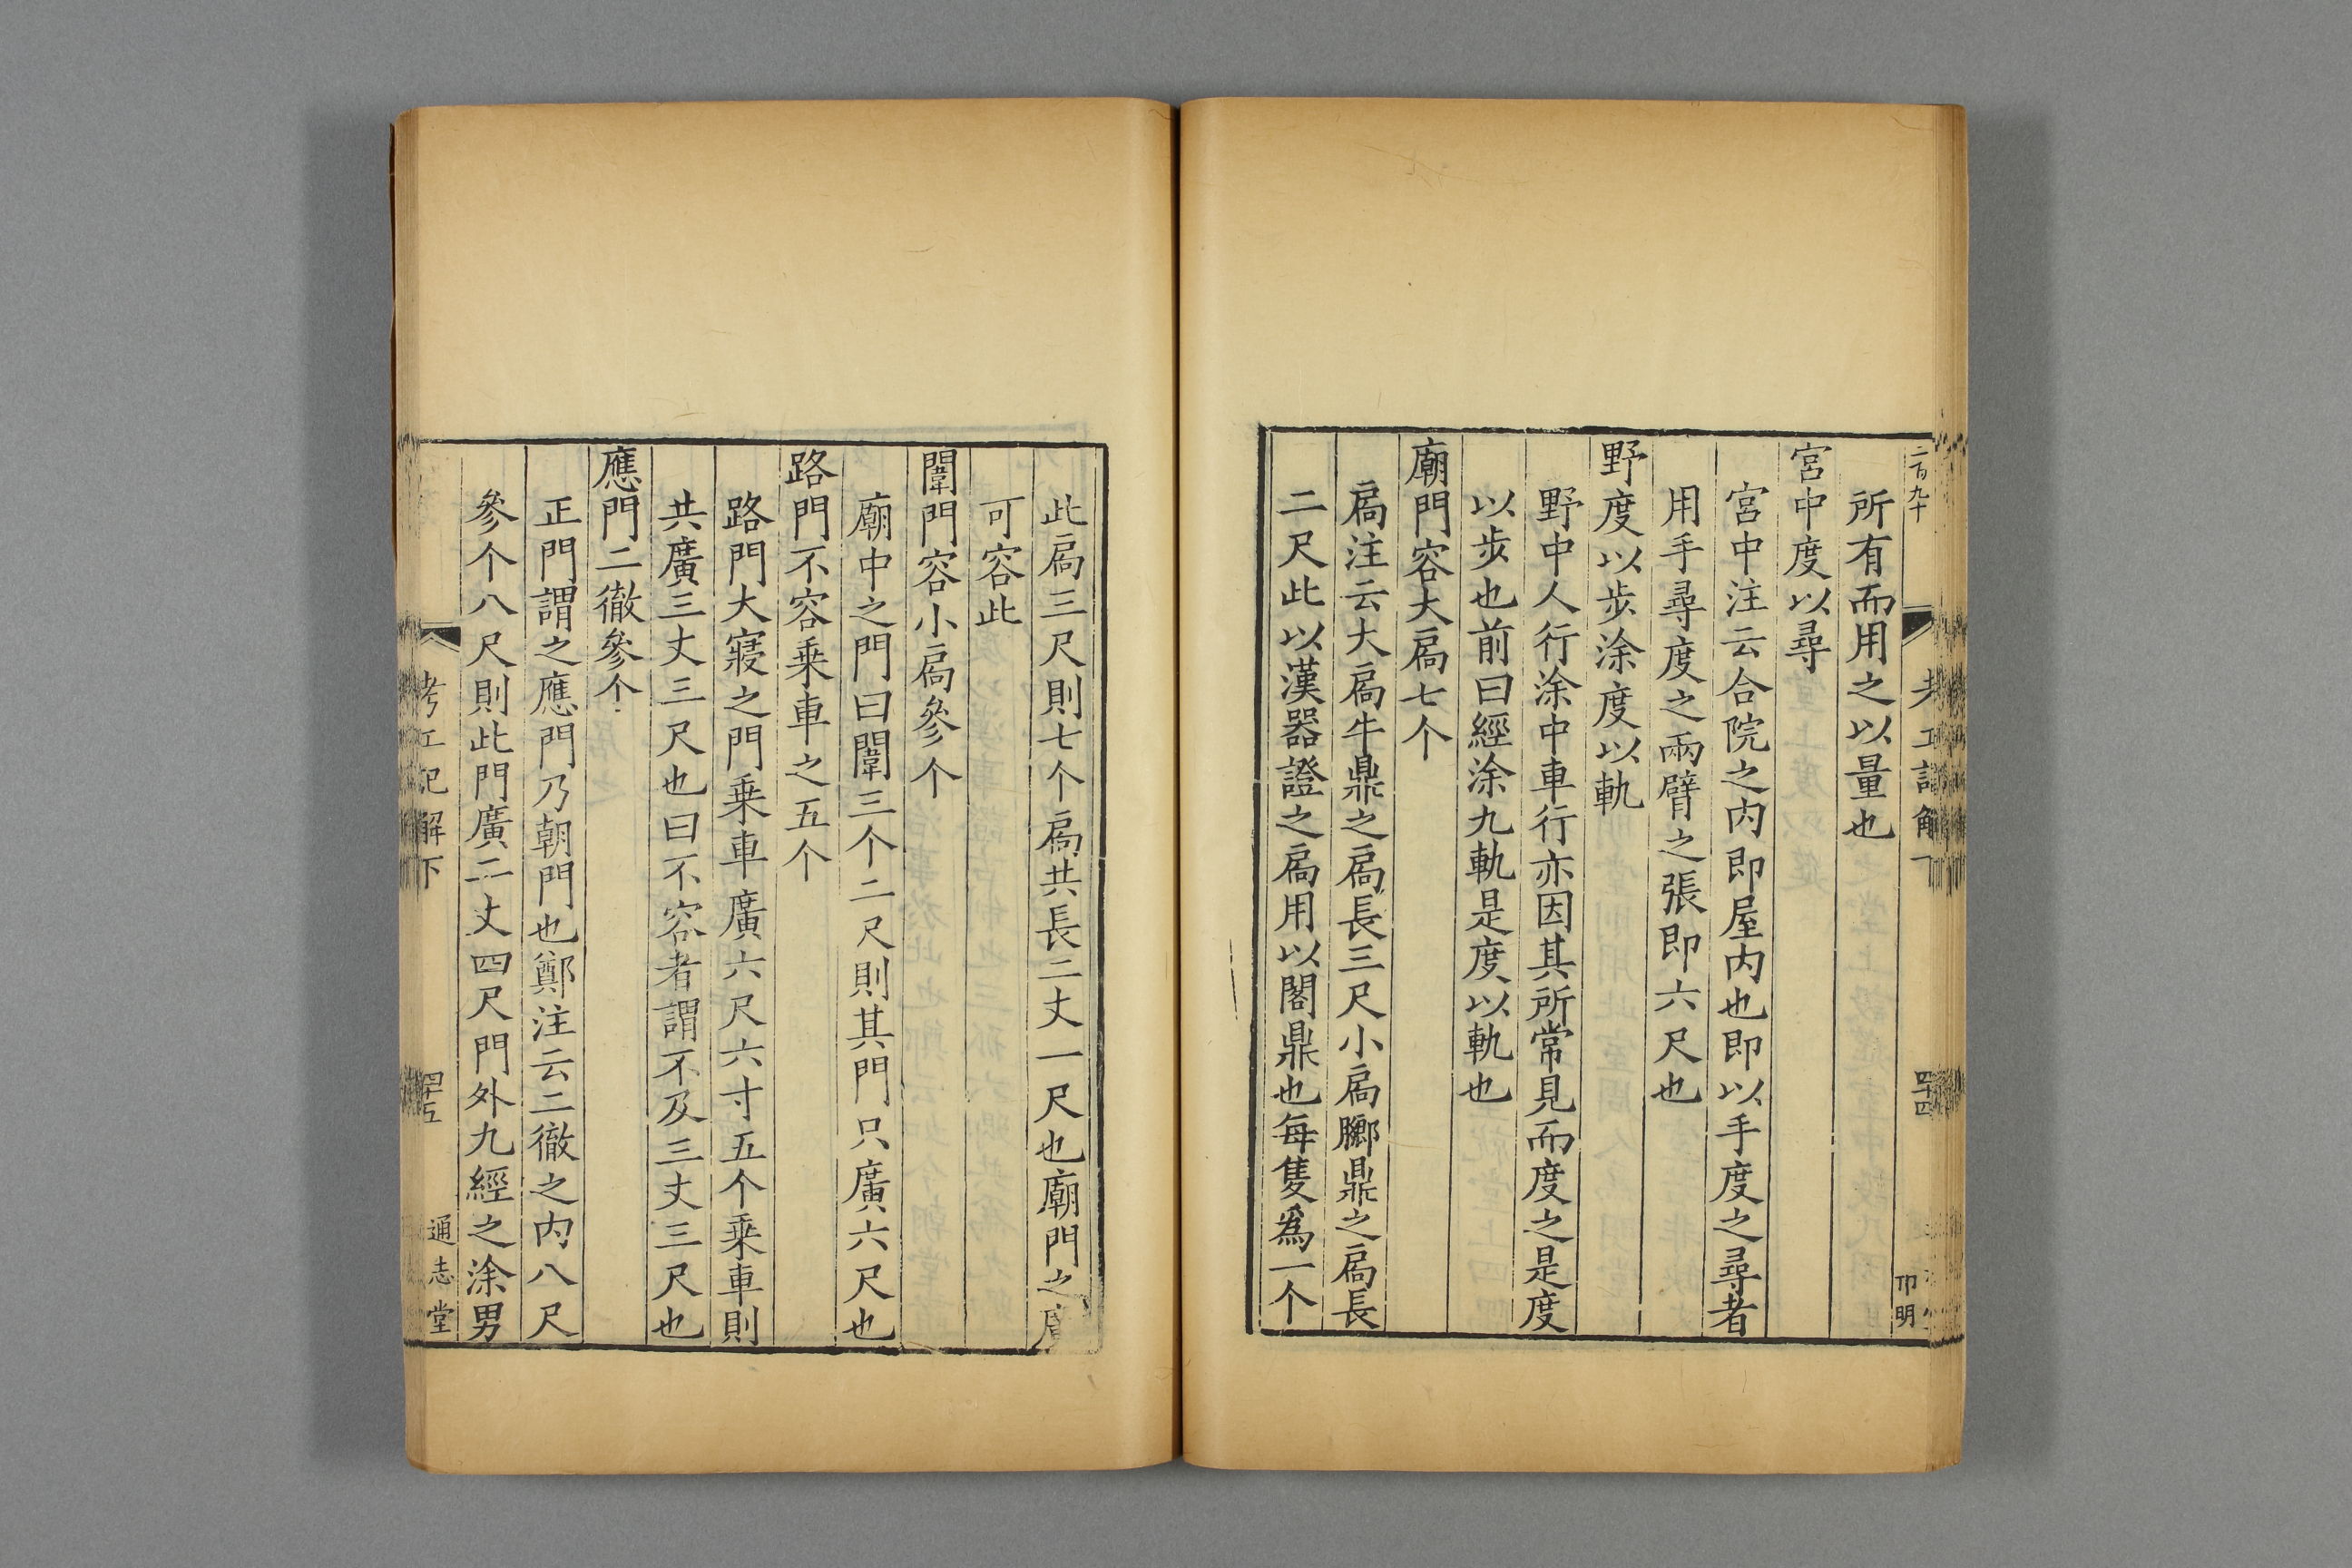 二百九十
考工記解下
四十四
卬明
所有而用之以量也
宮中度以尋
宮中注云合院之內即屋內也即以手度之尋者
用手尋度之兩臂之張即六尺也
野度以步涂度以軌
野中人行涂中車行亦因其所常見而度之是度
以步也前曰經涂九軌是度以軌也
廟門容大扃七个
扃注云大扃牛鼎之扃長三尺小扃膷鼎之扃長
二尺此以漢器證之扃用以閣鼎也每隻爲一个
此扃三尺則七个扃共長二丈一尺也廟門之廣
可容此
闈門容小扃參个
廟中之門曰闈三个二尺則其門只廣六尺也
路門不容乗車之五个
路門大寢之門乗車廣六尺六寸五个乗車則
共廣三丈三尺也曰不容者謂不及三丈三尺也
應門二徹參个
正門謂之應門乃朝門也鄭注云二徹之內八尺
參个八尺則此門廣二丈四尺門外九經之涂男
考工記解下
四十五
通志堂